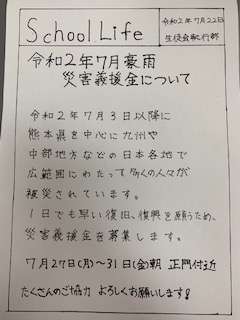 School Life
令和2年7月22日
生徒会執行部
令和2年7月豪雨
災害義援金について
令和2年7月3日以降に
熊本県を中心に九州や
中部地方などの日本各地で
広範囲にわたって多くの人々が
被災されています。
1日でも早い復旧、復興を願うため、
災害義援金を募集します。
7月27日(月)～31日(金)朝 正門付近
たくさんのご協力 よろしくお願いします!